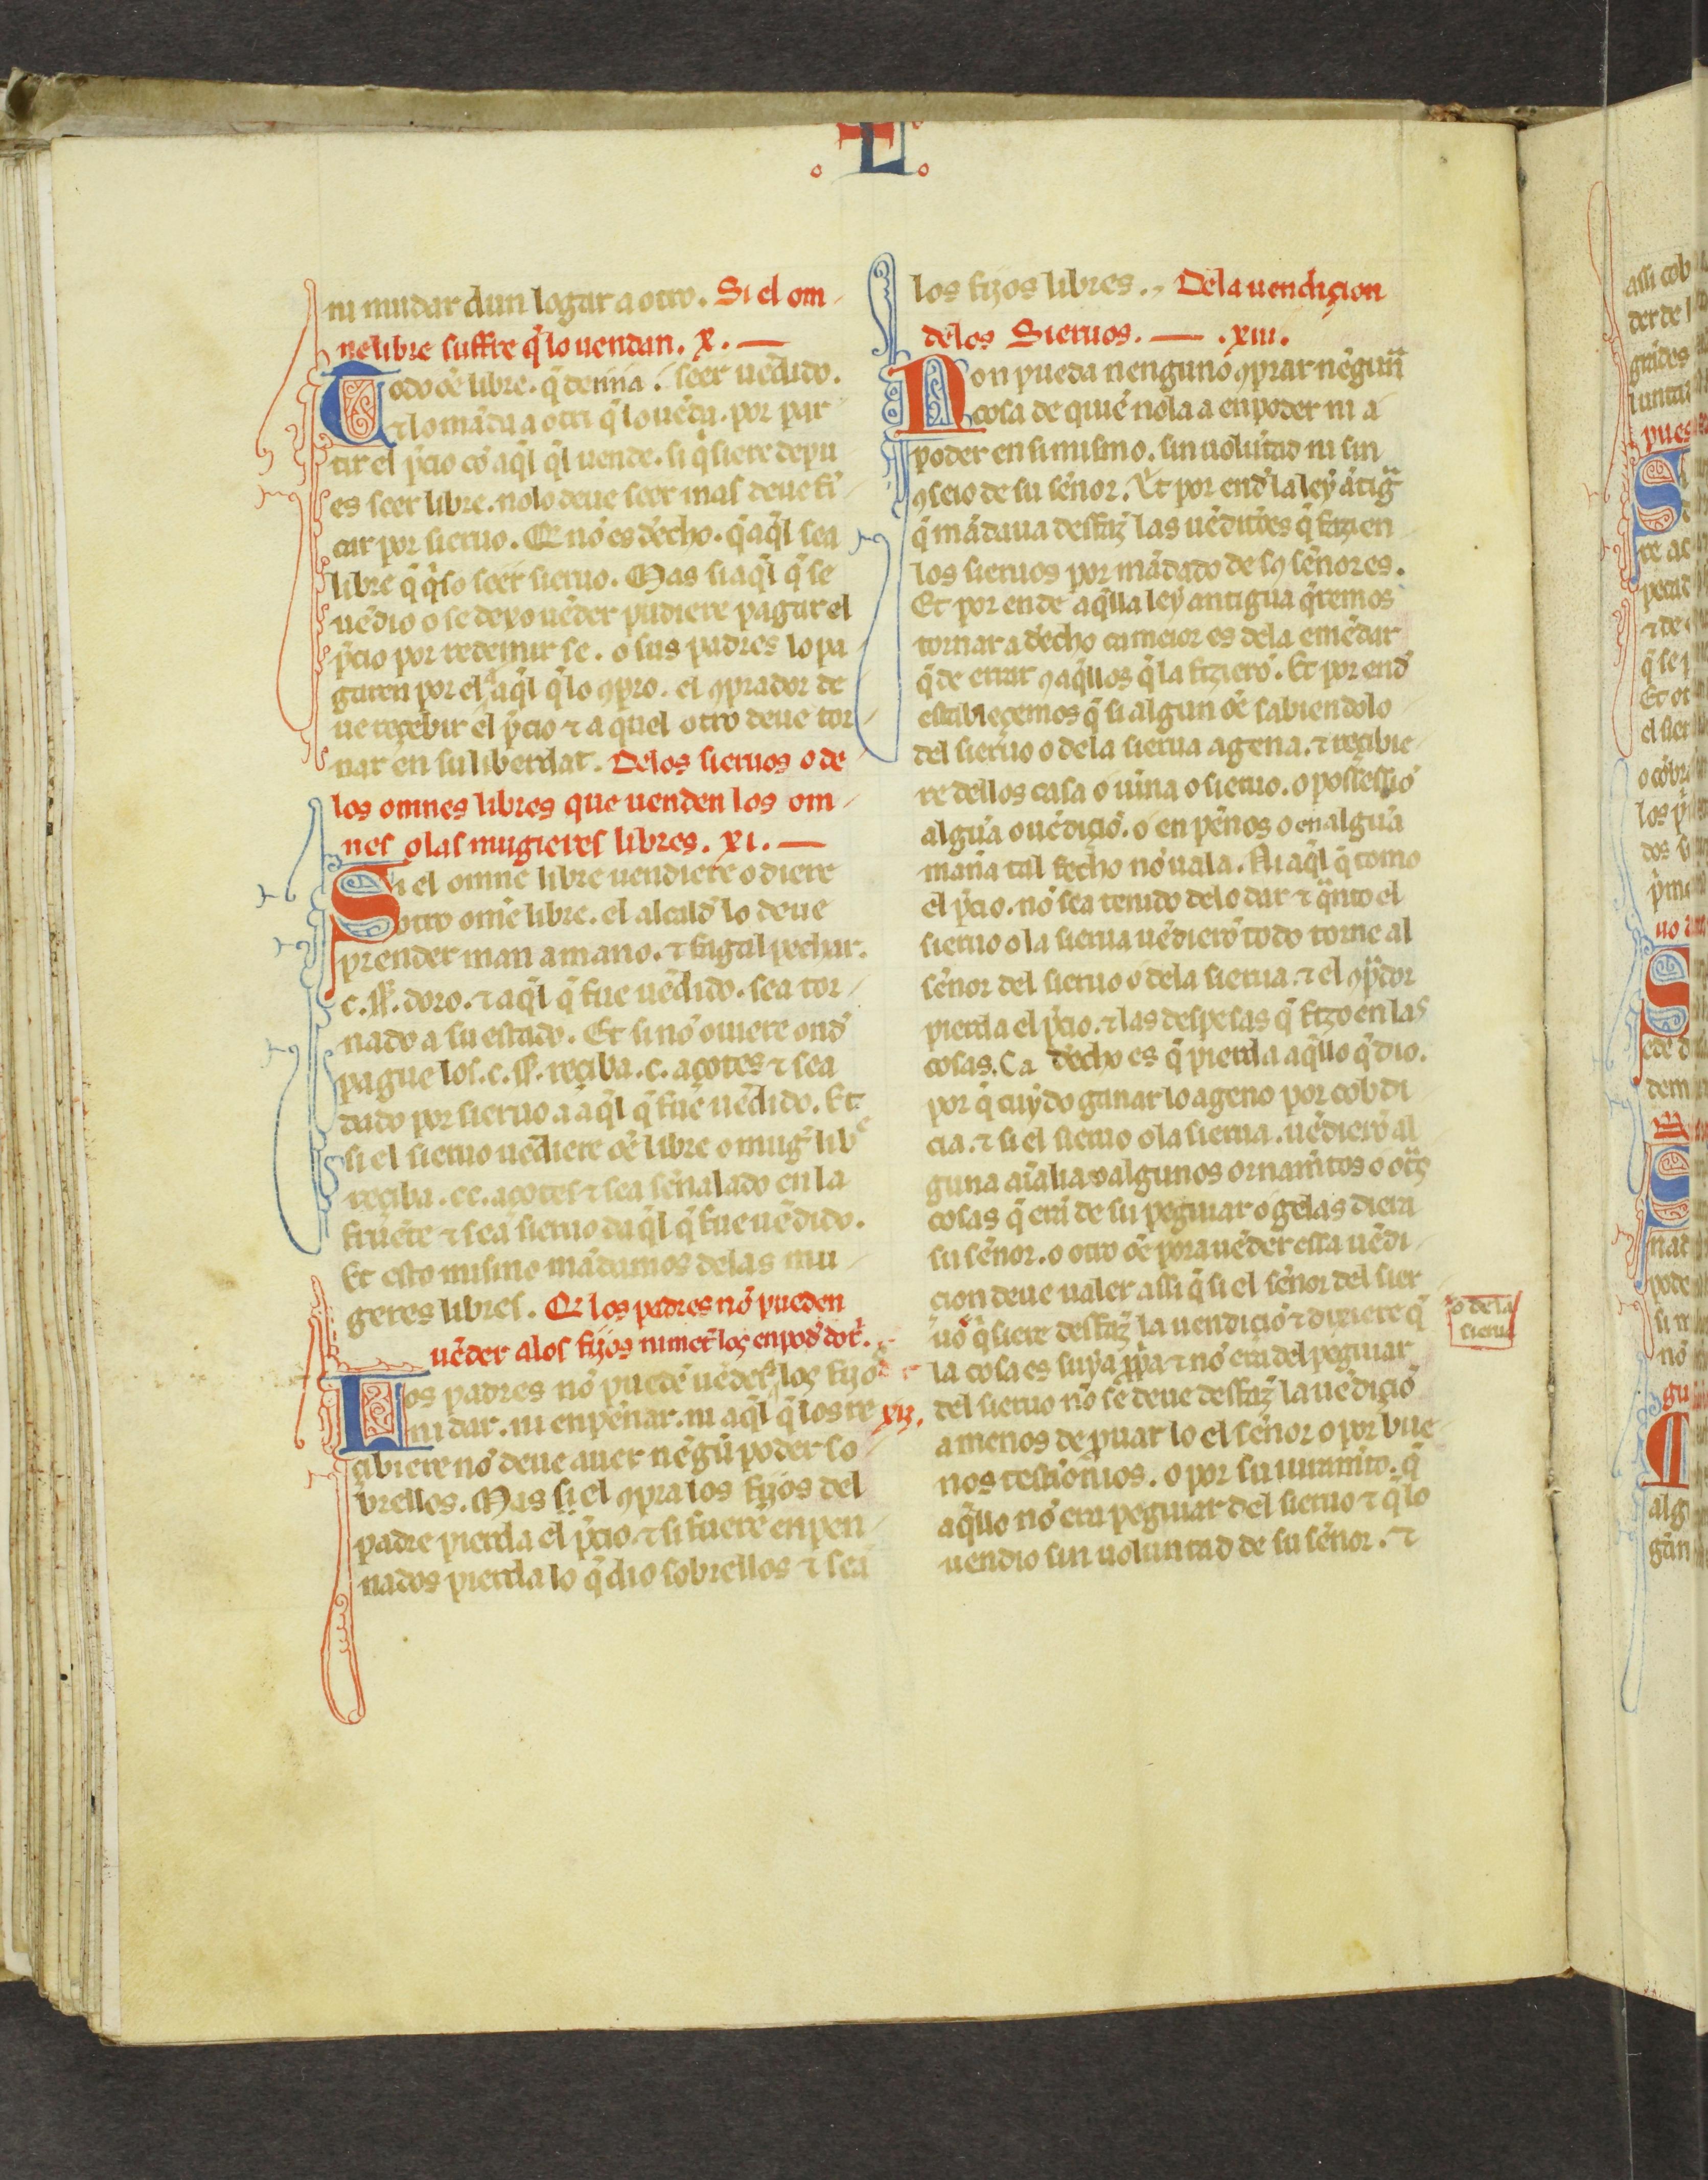 L
ni mudar dun logar a otro. Si el om
ne libre suffre q̃ lo uendan. X.
Todo oẽ libre. q̃ dema i seer uẽdido.
et lo mãda a otri q̃ lo uẽda. por par
tir el p̃cio cõ aq̃l q̃l uende. si q̃siere depu
es seer libre. nolo deue seer mas deue fi
car por sieruo. Ca nõ es d̃echo. q̃ aq̃l sea
libre q̃ q̃so seer sieruo. Mas si aq̃l q̃ se
uẽdio o se dexo uẽder pudiere pagar el
p̃cio por redemir se. o sus padres lo pa
garen por el a aq̃l q̃ lo ꝯpro. el ꝯprador de
ue reçebir el p̃cio ⁊ a quel otro deue tor
nar en su liberdat. Delos sieruos o de
los omnes libres que uenden los om
nes o las mugieres libres. XI.
Si el omne libre uendiere o diere
otro omẽ libre. el alcald̃ lo deue
prender man a mano. ⁊ fagal pechar.
c. ss. doro. ⁊ aq̃l q̃ fue uẽdido. sea tor
nado a su estado. Et si nõ ouiere ond̃
pague los .c. ss. reçiba .c. açotes ⁊ sea
dado por sieruo a aq̃l q̃ fue uẽdido. Et
si el sieruo uẽdiere oẽ libre o mug̃ lib̃e
reçiba .cc. açotes ⁊ sea señalado en la
fruẽte ⁊ sea sieruo daq̃l q̃ fue uẽdido.
Et esto mismo mãdamos delas mu
geres libres. Q̃ los padres nõ pueden
uẽder alos fijos ni met̃ los en pod̃ dot̃.
Los padres nõ puedẽ uẽder los fijos
ni dar. ni enpẽnar. ni aq̃l q̃ los re XII.
cibiere nõ deue auer nẽgũ poder so
brellos. Mas si el ꝯpra los fijos del
padre pierda el p̃cio. ⁊ si fuerẽ enpen
nados pierda lo q̃ dio sobrellos ⁊ seã
los fijos libres. De la uendiçion
delos Sieruos. XIII.
Non pueda nenguno ꝯprar nẽguna
cosa de quiẽ nola a en poder ni a
poder en si mismo. sin uolũtad ni sin
ꝯseio de su señor. Et por end̃ la ley ãtiga
q̃ mãdaua desfaz̃ las uẽditiões q̃ fazien
los sieruos por mãdado de sꝯ señores.
Et por ende aq̃lla ley antigua q̃remos
tornar a d̃echo ca meior es dela emẽdar
q̃ de errar ꝯ aq̃llos q̃ la fizierõ. Et por end̃
establecemos q̃ si algun oẽ sabiendolo
del sieruo o dela sierua agena. ⁊ recibie
re dellos casa o uina o sieruo. o possessiõ
algũa o uẽdiçiõ. o en pẽnos o en algũa
mañã tal fecho nõ uala. Ni aq̃l q̃ tomo
el p̃cio. nõ sea tenido delo dar ⁊ q̃nto el
sieruo o la sierua uẽdierõ todo torne al
señor del sieruo o dela sierua. ⁊ el ꝯp̃dor
pierda el p̃cio. ⁊ las despesas q̃ fizo en las
cosas. Ca d̃echo es q̃ pierda aq̃llo q̃ dio.
por q̃ cuydo ganar lo ageno por cobdi
cia. ⁊ si el sieruo o la sierua. uẽdierõ al
guna ãialia o algunos ornam̃tos o otas
cosas q̃ erã de su peguiar o gelas diera
su señor. o otro oẽ pora uẽder essa uẽdi
cion deue ualer assi q̃ si el señor del sier o dela
uo q̃siere desfaz̃ la uendiciõ ⁊ dixiere q̃ sierua
la cosa es suya ꝓpia ⁊ nõ era del peguiar
del sieruo nõ se deue desfaz̃ la uẽdiçiõ
a menos de puar lo el señor o por bue
nos testimonios. o por su iuram̃to. q̃
aq̃llo nõ era peguiar del sieruo ⁊ q̃ lo
uendio sin uoluntad de su señor. ⁊